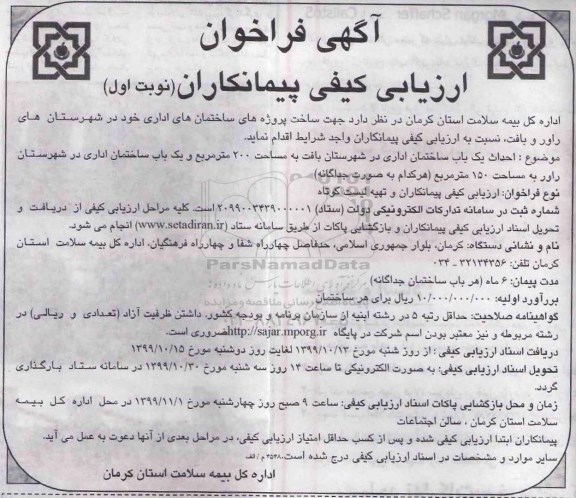 آگهی فراخوان
ارزیابی کیفی پیمانکاران (نوبت اول)
اداره کل بیمه سلامت استان کرمان در نظر دارد جهت ساخت پروژه های ساختمان های اداری خود در شهرستان های
راور و بافت، نسبت به ارزیابی کیفی پیمانکاران واجد شرایط اقدام نماید.
موضوع : احداث یک باب ساختمان اداری در شهرستان بافت به مساحت ۲۰۰ مترمربع و یک باب ساختمان اداری در شهرستان
راور به مساحت ۱۵۰ مترمربع (هرکدام به صورت جداگانه)
نوع فراخوان: ارزیابی کیفی پیمانکاران و تهیه لیست کوتاه
شماره ثبت در سامانه تدارکات الکترونیکی دولت (ستاد) ۲۰۹۹۰۰۳۴۳۹۰۰۰۰۰۱ است. کلیه مراحل ارزیابی کیفی از دریافت و
تحویل اسناد ارزیابی کیفی پیمانکاران و بازگشایی پاکات از طریق سامانه ستاد (www.setadiran.ir) انجام می شود.
نام و نشانی دستگاه: کرمان، بلوار جمهوری اسلامی، حدفاصل چهارراه شفا و چهارراه فرهنگیان، اداره کل بیمه سلامت استان
کرمان تلفن: ۳۲۱۳۴۳۵۶ - ۰۳۴
ParsNamadData
مدت پیمان: ۶ ماه (هر باب ساختمان جداگانه)
بررآورد اولیه: ۱۰/۰۰۰/۰۰۰/۰۰۰ ریال برای هر ساختمان
گواهینامه صلاحیت: حداقل رتبه ۵ در رشته ابنیه از سازمان برنامه و بودجه کشور. داشتن ظرفیت آزاد (تعدادی و ریالی) در
رشته مربوطه و نیز معتبر بودن اسم شرکت در پایگاه http://sajar.mporg.ir ضروری است.
دریافت اسناد ارزیابی کیفی: از روز شنبه مورخ ۱۳۹۹/۱۰/۱۳ لغایت روز دوشنبه مورخ ۱۳۹۹/۱۰/۱۵
تحویل اسناد ارزیابی کیفی: به صورت الکترونیکی تا ساعت ۱۴ روز سه شنبه مورخ ۱۳۹۹/۱۰/۳۰ در سامانه ستاد بارگذاری
گردد.
زمان و محل بازگشایی پاکات اسناد ارزیابی کیفی: ساعت ۹ صبح روز چهارشنبه مورخ ۱۳۹۹/۱۱/۱ در محل اداره کل بیمه
سلامت استان کرمان ، سالن اجتماعات
پیمانکاران ابتدا ارزیابی کیفی شده و پس از کسب حداقل امتیاز ارزیابی کیفی، در مراحل بعدی از آنها دعوت به عمل می آید.
سایر موارد و مشخصات در اسناد ارزیابی کیفی درج شده است.
اداره کل بیمه سلامت استان کرمان